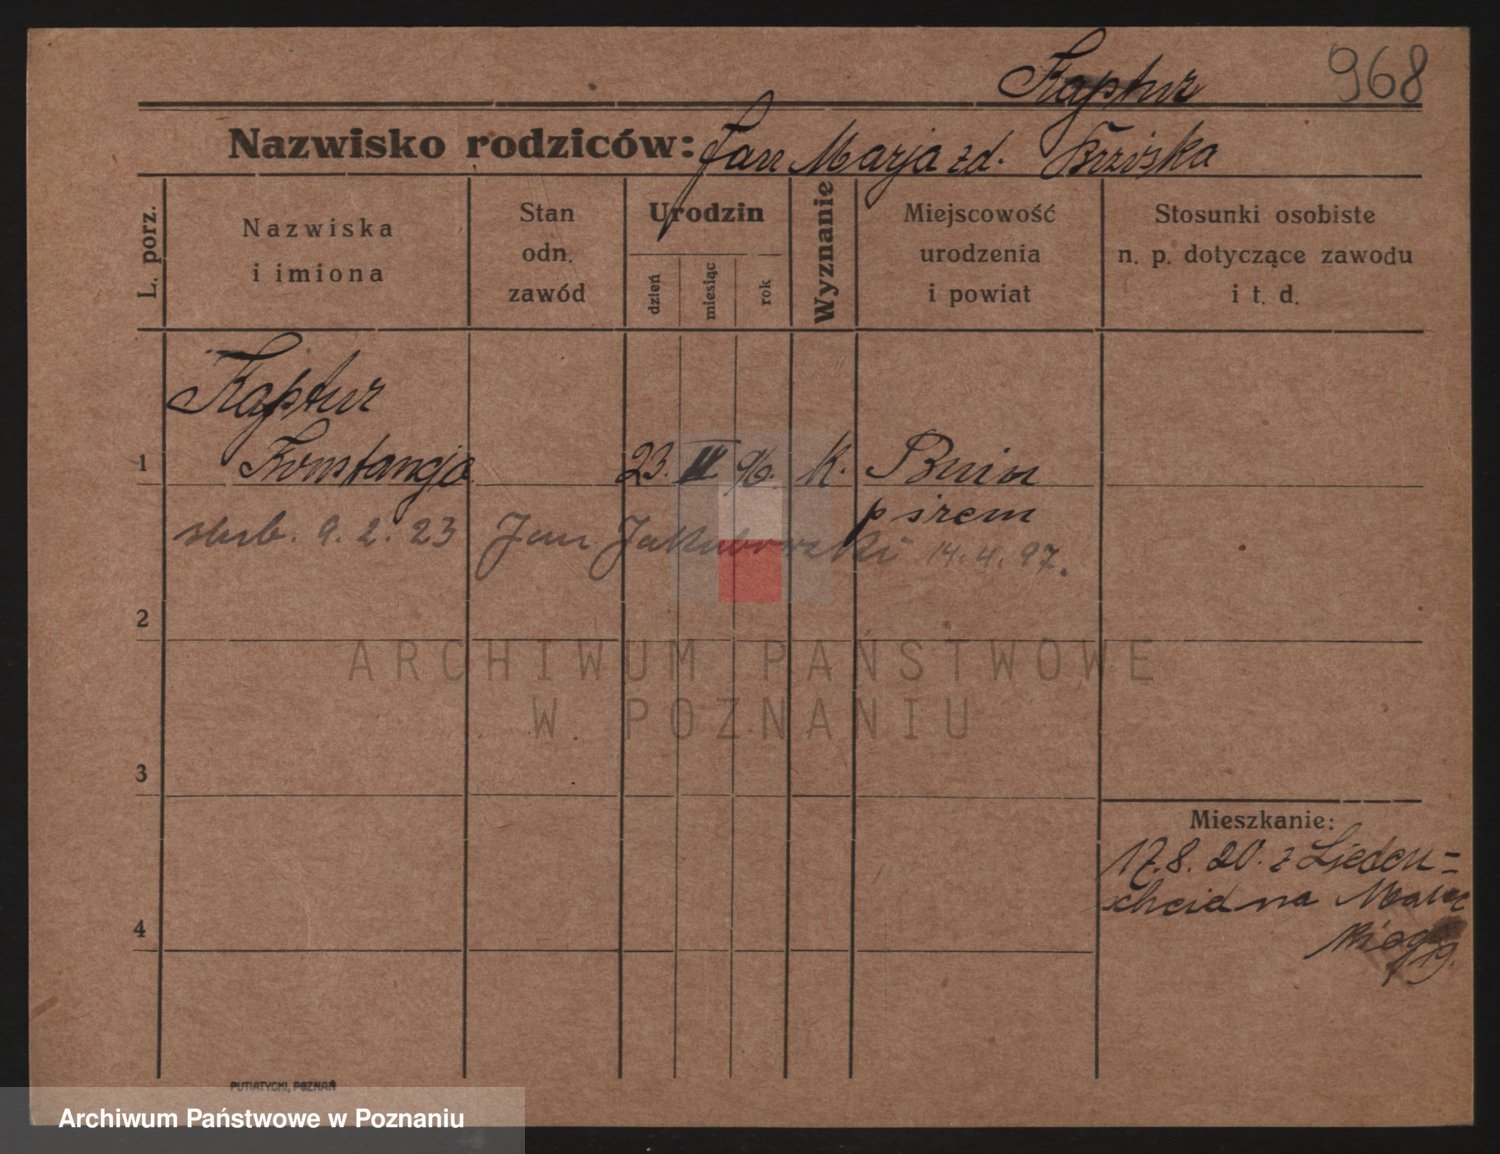 Kaptur 968
Nazwisko rodziców: Jan Marja zd.
L. porz.
Nazwiska
i imiona
Stan
odn.
zawód
Urodzin
dzień
miesiąc
rok
Wyznanie
Miejscowość
urodzenia
i powiat
Stosunki osobiste
n. p. dotyczące zawodu
i t. d.
Kaptur
1 Konstancja 23. 96. K. Bnin
p śrem
slub. 9. 2. 23 Jan Jakubowski 14. 4. 97.
2
ARCHIWUM PAŃSTWOWE
W POZNANIU
3
Mieszkanie:
17. 8. 20. z Lieden=
scheid na
4
19.
PUTIATYCKI, POZNAŃ
Archiwum Państwowe w Poznaniu